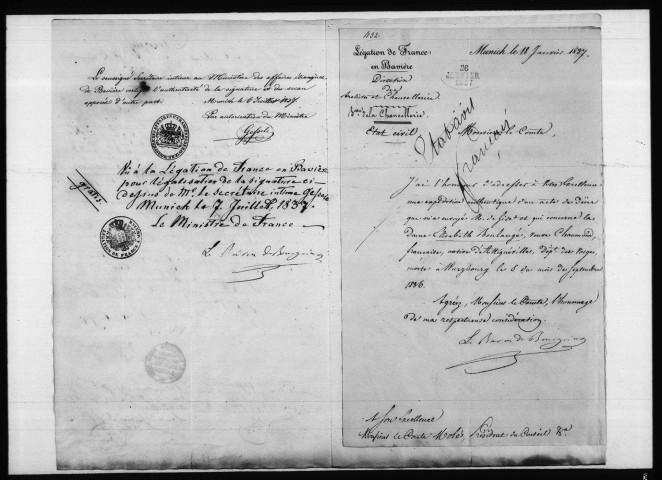 Le soussigné Secrétaire intime au Ministère des affaires étrangères
de Bavière certifie l'authenticité de la signature et du sceau
apposés d'autre part.
Munich le 6 Juillet 1837.
Par autorisation du Ministre
Gessele
gratis
Vu à la Légation de France en Bavière
pour légalisation de la signature ci-
dessus de Mr. le secrétaire intime Gessele
Munich le 7. Juillet, 1837
Le Ministre de France
Le Baron de Bourgoing
432
Légation de France
en Bavière
Direction
des
Archives et Chancelleries
de la Chancellerie
Etat civil
Munich le 18 Janvier 1837.
26
JANVIER
1837
Monsieur le Comte,
français
J'ai l'honneur d'adresser à Votre Excellence
une expédition authentique d'un acte de décès
que m'a envoyé Mr. de et qui concerne la
Dame Elisabeth Boulangé, veuve
française, native d'Attignéville, dépt. des Vosges,
morte à Wurzbourg le 5 du mois de septembre
1836.
Agréez, Monsieur le Comte, l'hommage
de ma respectueuse considération.
Le Baron de Bourgoing
A Son Excellence
Monsieur le Comte Molé, Président du Conseil &a.